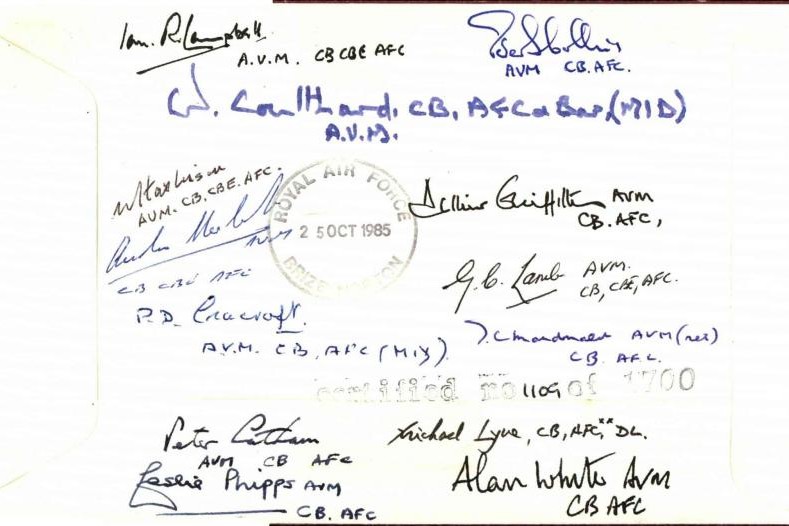 Ian. R. Campbell.
A.V.M. CB CBE AFC
AVM CB. AFC.
W. Coulthard. CB, AFC & Bar, (MID)
A.V.M.
AVM. CB. CBE. AFC.
ROYAL AIR FORCE
25 OCT 1985
BRIZE NORTON
Griffiths AVM
CB. AFC,
CB CBE AFC
G. C. Lamb AVM.
CB, CBE, AFC.
P.D. Cracroft.
A.V.M. CB, AFC (MID).
AVM (ret)
CB AFC.
certified no 1109 of 1700
Peter Latham
AVM CB AFC
Michael Lyne, CB, AFC,** DL.
Leslie Phipps AVM
CB. AFC
Alan White AVM
CB AFC